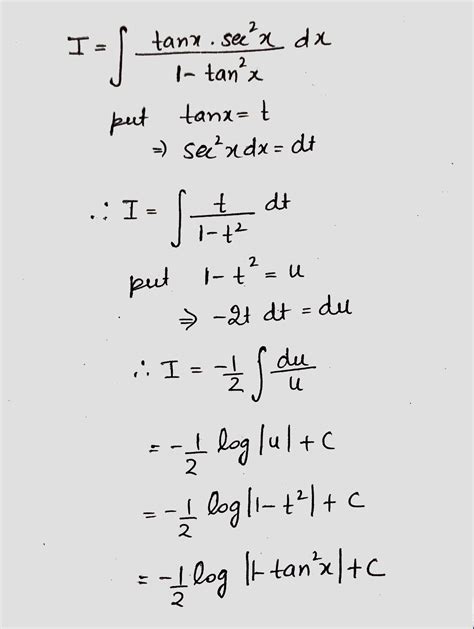 I = ∫ tanx . sec²x / 1 - tan²x dx
put tanx = t
⇒ sec²x dx = dt
∴ I = ∫ t / 1 - t² dt
put 1 - t² = u
⇒ -2t dt = du
∴ I = -1/2 ∫ du/u
= -1/2 log |u| + C
= -1/2 log |1 - t²| + C
= -1/2 log |1- tan²x| + C